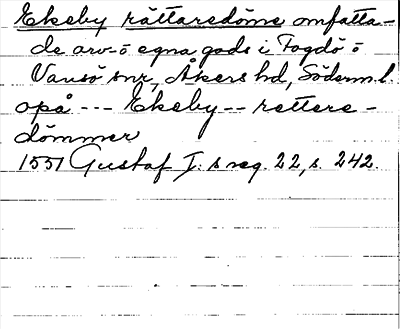 Ekeby rättaredöme omfatta-
de arv- o egna gods i Fogdö o
Vansö snr, Åkers hd, Söderm.l.
opå --- Ekeby -- rettere-
dömmer
1551 Gustaf I. s reg. 22, s. 242.